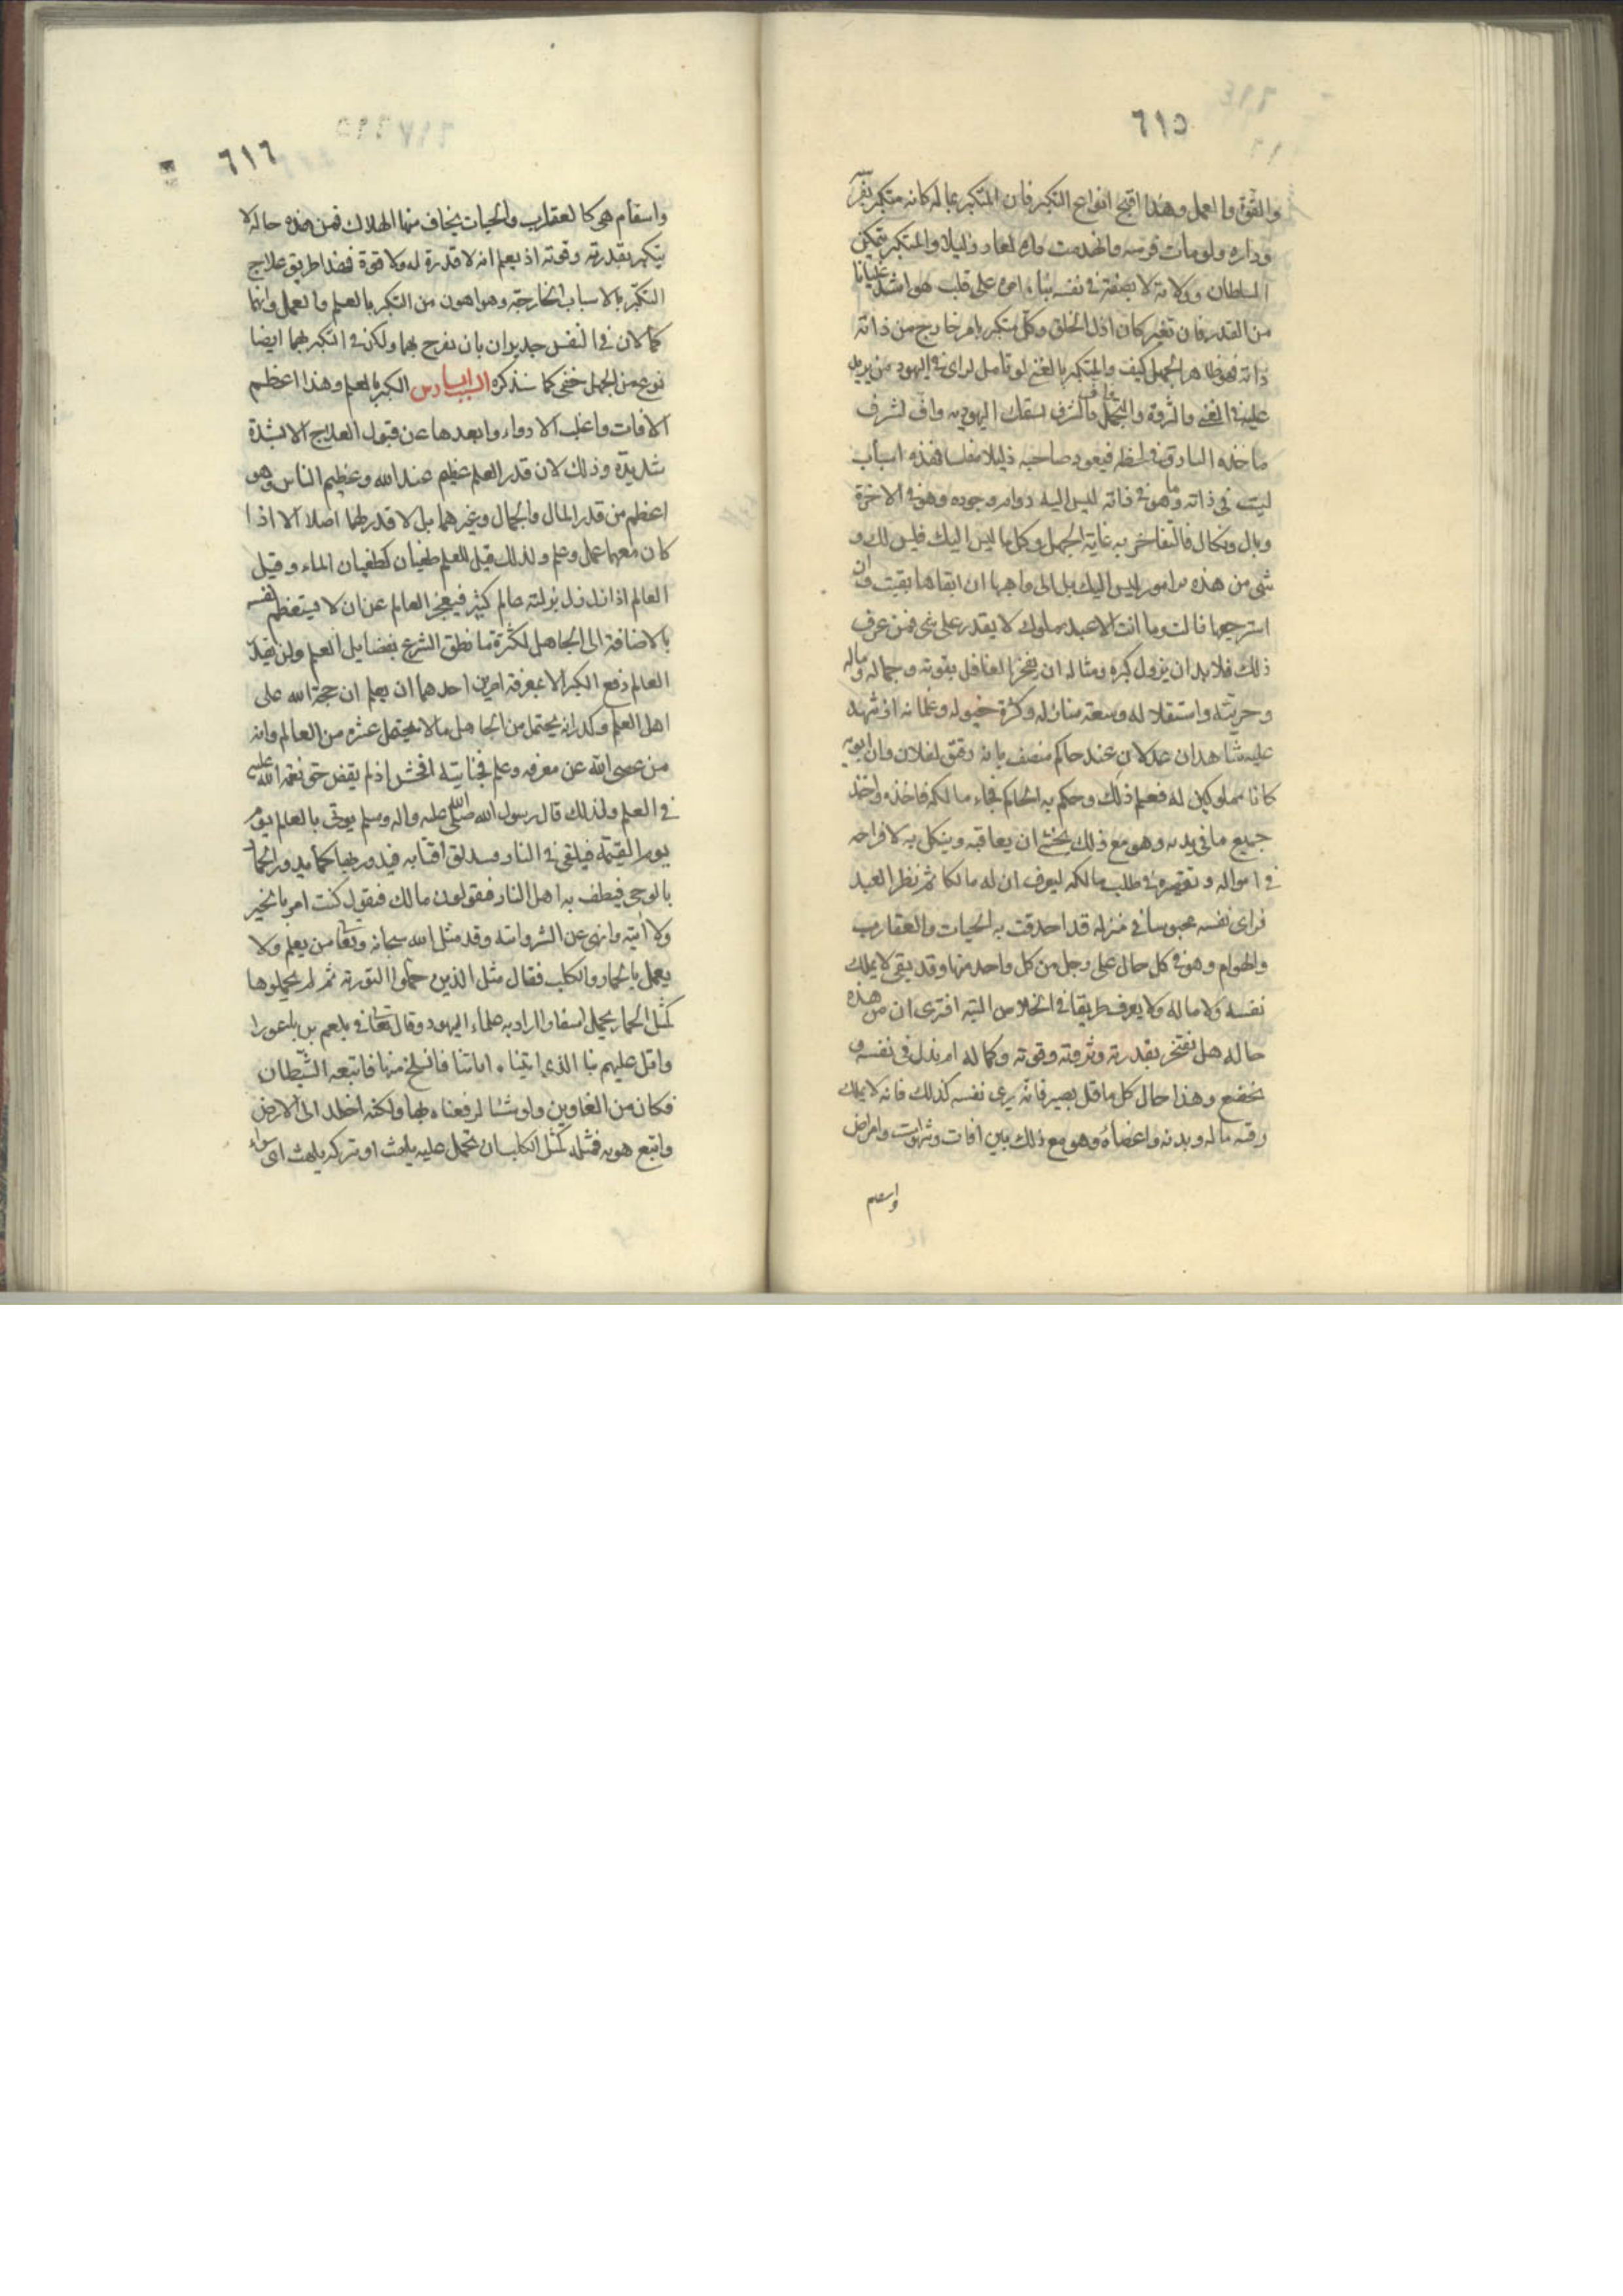 ٦١٥
والقوة والعمل وهذا اقبح انواع التكبر فان المتكبر بماله كانه متكبر بفرسه
وداره ولو مات فرسه وانهدمت داره لعاد ذليلا والمتكبر بتمكين
السلطان وولايته لا بصفة في نفسه بناء امره على قلب هو اشد غليانا
من القدر فان تغير كان اذل الخلق وكل متكبر بامر خارج من ذاته
فهو ظاهر الجهل كيف والمتكبر بالغنى لو تامل لراى في اليهود من يزيد
عليه في الغنى والثروة والتجمل فاف لشرف يسبقك اليهود به واف لشرف
ياخذه السارق في لحظه فيعود صاحبه ذليلا مفلسا فهذه اسباب
ليست في ذاته وما هو في ذاته ليس اليه دوام وجوده وهو في الاخرة
وبال ونكال فالتفاخر به غاية الجهل وكل ما ليس اليك فليس لك و
شي من هذه الامور ليس اليك بل الى واهبها ان ابقاها بقيت وان
استرجعها زالت وما انت الا عبد مملوك لا يقدر على شي فمن عرف
ذلك فلا بد ان يزول كبره ومثاله ان يفخر الغافل بقوته وجماله وماله
وحريته واستقلاله وسعة منازله وكثرة خيوله وغلمانه اذ شهد
عليه شاهدان عدلان عند حاكم منصف بانه رقيق لفلان وان ابويه
كانا مملوكين له فعلم ذلك وحكم به الحاكم فجاء مالكه فاخذه واخذ
جميع ما في يده وهو مع ذلك يخشى ان يعاقبه وينكل به لافراطه
في امواله وتقصيره في طلب مالكه ليعرف ان له مالكا ثم نظر العبد
فراى نفسه محبوسا في منزله قد احدقت به الحيات والعقارب
والهوام وهو في كل حال على وجل من كل واحد منها وقد بقى لا يملك
نفسه ولا ماله ولا يعرف طريقا في الخلاص البته افترى ان من هذه
حاله هل يفتخر بقدرته وثروته وقوته وكماله ام يذل في نفسه و
يخضع وهذا حال كل عاقل بصير فانه يرى نفسه كذلك فانه لا يملك
رقبته وماله وبدنه واعضاءه وهو مع ذلك بين افات وشهوات وامراض
واسقام
٦١٦
واسقام هي كالعقارب والحيات يخاف منها الهلاك فمن هذه حاله لا
يتكبر بقدرته وقوته اذ يعلم انه لا قدرة له ولا قوة فهذا طريق علاج
التكبر بالاسباب الخارجة وهو اهون من التكبر بالعلم والعمل وانهما
كمالان في النفس جديران بان يفرح بهما ولكن في التكبر بهما ايضا
نوع من الجهل خفي كما سنذكره السبب السادس الكبر بالعلم وهذا اعظم
الافات واغلب الادواء وابعدها عن قبول العلاج الا بشدة
شديدة وذلك لان قدر العلم عظيم عند الله وعظيم الناس وهو
اعظم من قدر المال والجمال وغيرهما بل لا قدر لهما اصلا الا اذا
كان معهما عمل وعلم ولذلك قيل للعلم طغيان كطغيان الماء وقيل
العالم اذا زل زل بزلته عالم كثير فيعجز العالم عن ان لا يستعظم نفسه
بالاضافة الى الجاهل لكثرة ما نطق الشرع بفضايل العلم ولن يقدر
العالم دفع الكبر الا بمعرفة امرين احدهما ان يعلم ان حجة الله على
اهل العلم وكد وانه يحتمل من الجاهل ما لا يحتمل عشره من العالم وانه
من عصى الله عن معرفه وعلم فجنايته افحش اذ لم يقض حق نعمة الله عليه
في العلم ولذلك قال رسول الله صلى الله عليه واله وسلم يوتى بالعالم يوم
يوم القيمة فيلقى في النار فتندلق اقتابه فيدور بها كما يدور الحمار
بالرحى فيطف به اهل النار فيقولون مالك فيقول كنت امر بالخير
ولا اتيه وانهى عن الشر واتيه وقد مثل الله سبحانه وتعالى من يعلم ولا
يعمل بالحمار والكلب فقال مثل الذين حملوا التورية ثم لم يحملوها
كمثل الحمار يحمل اسفارا اراد به علماء اليهود وقال تعالى في بلعم بن باعورا
واتل عليهم نبا الذي اتيناه اياتنا فانسلخ منها فاتبعه الشيطان
فكان من الغاوين ولو شئنا لرفعناه بها ولكنه اخلد الى الارض
واتبع هويه فمثله كمثل الكلب ان تحمل عليه يلهث او تتركه يلهث اى سواء